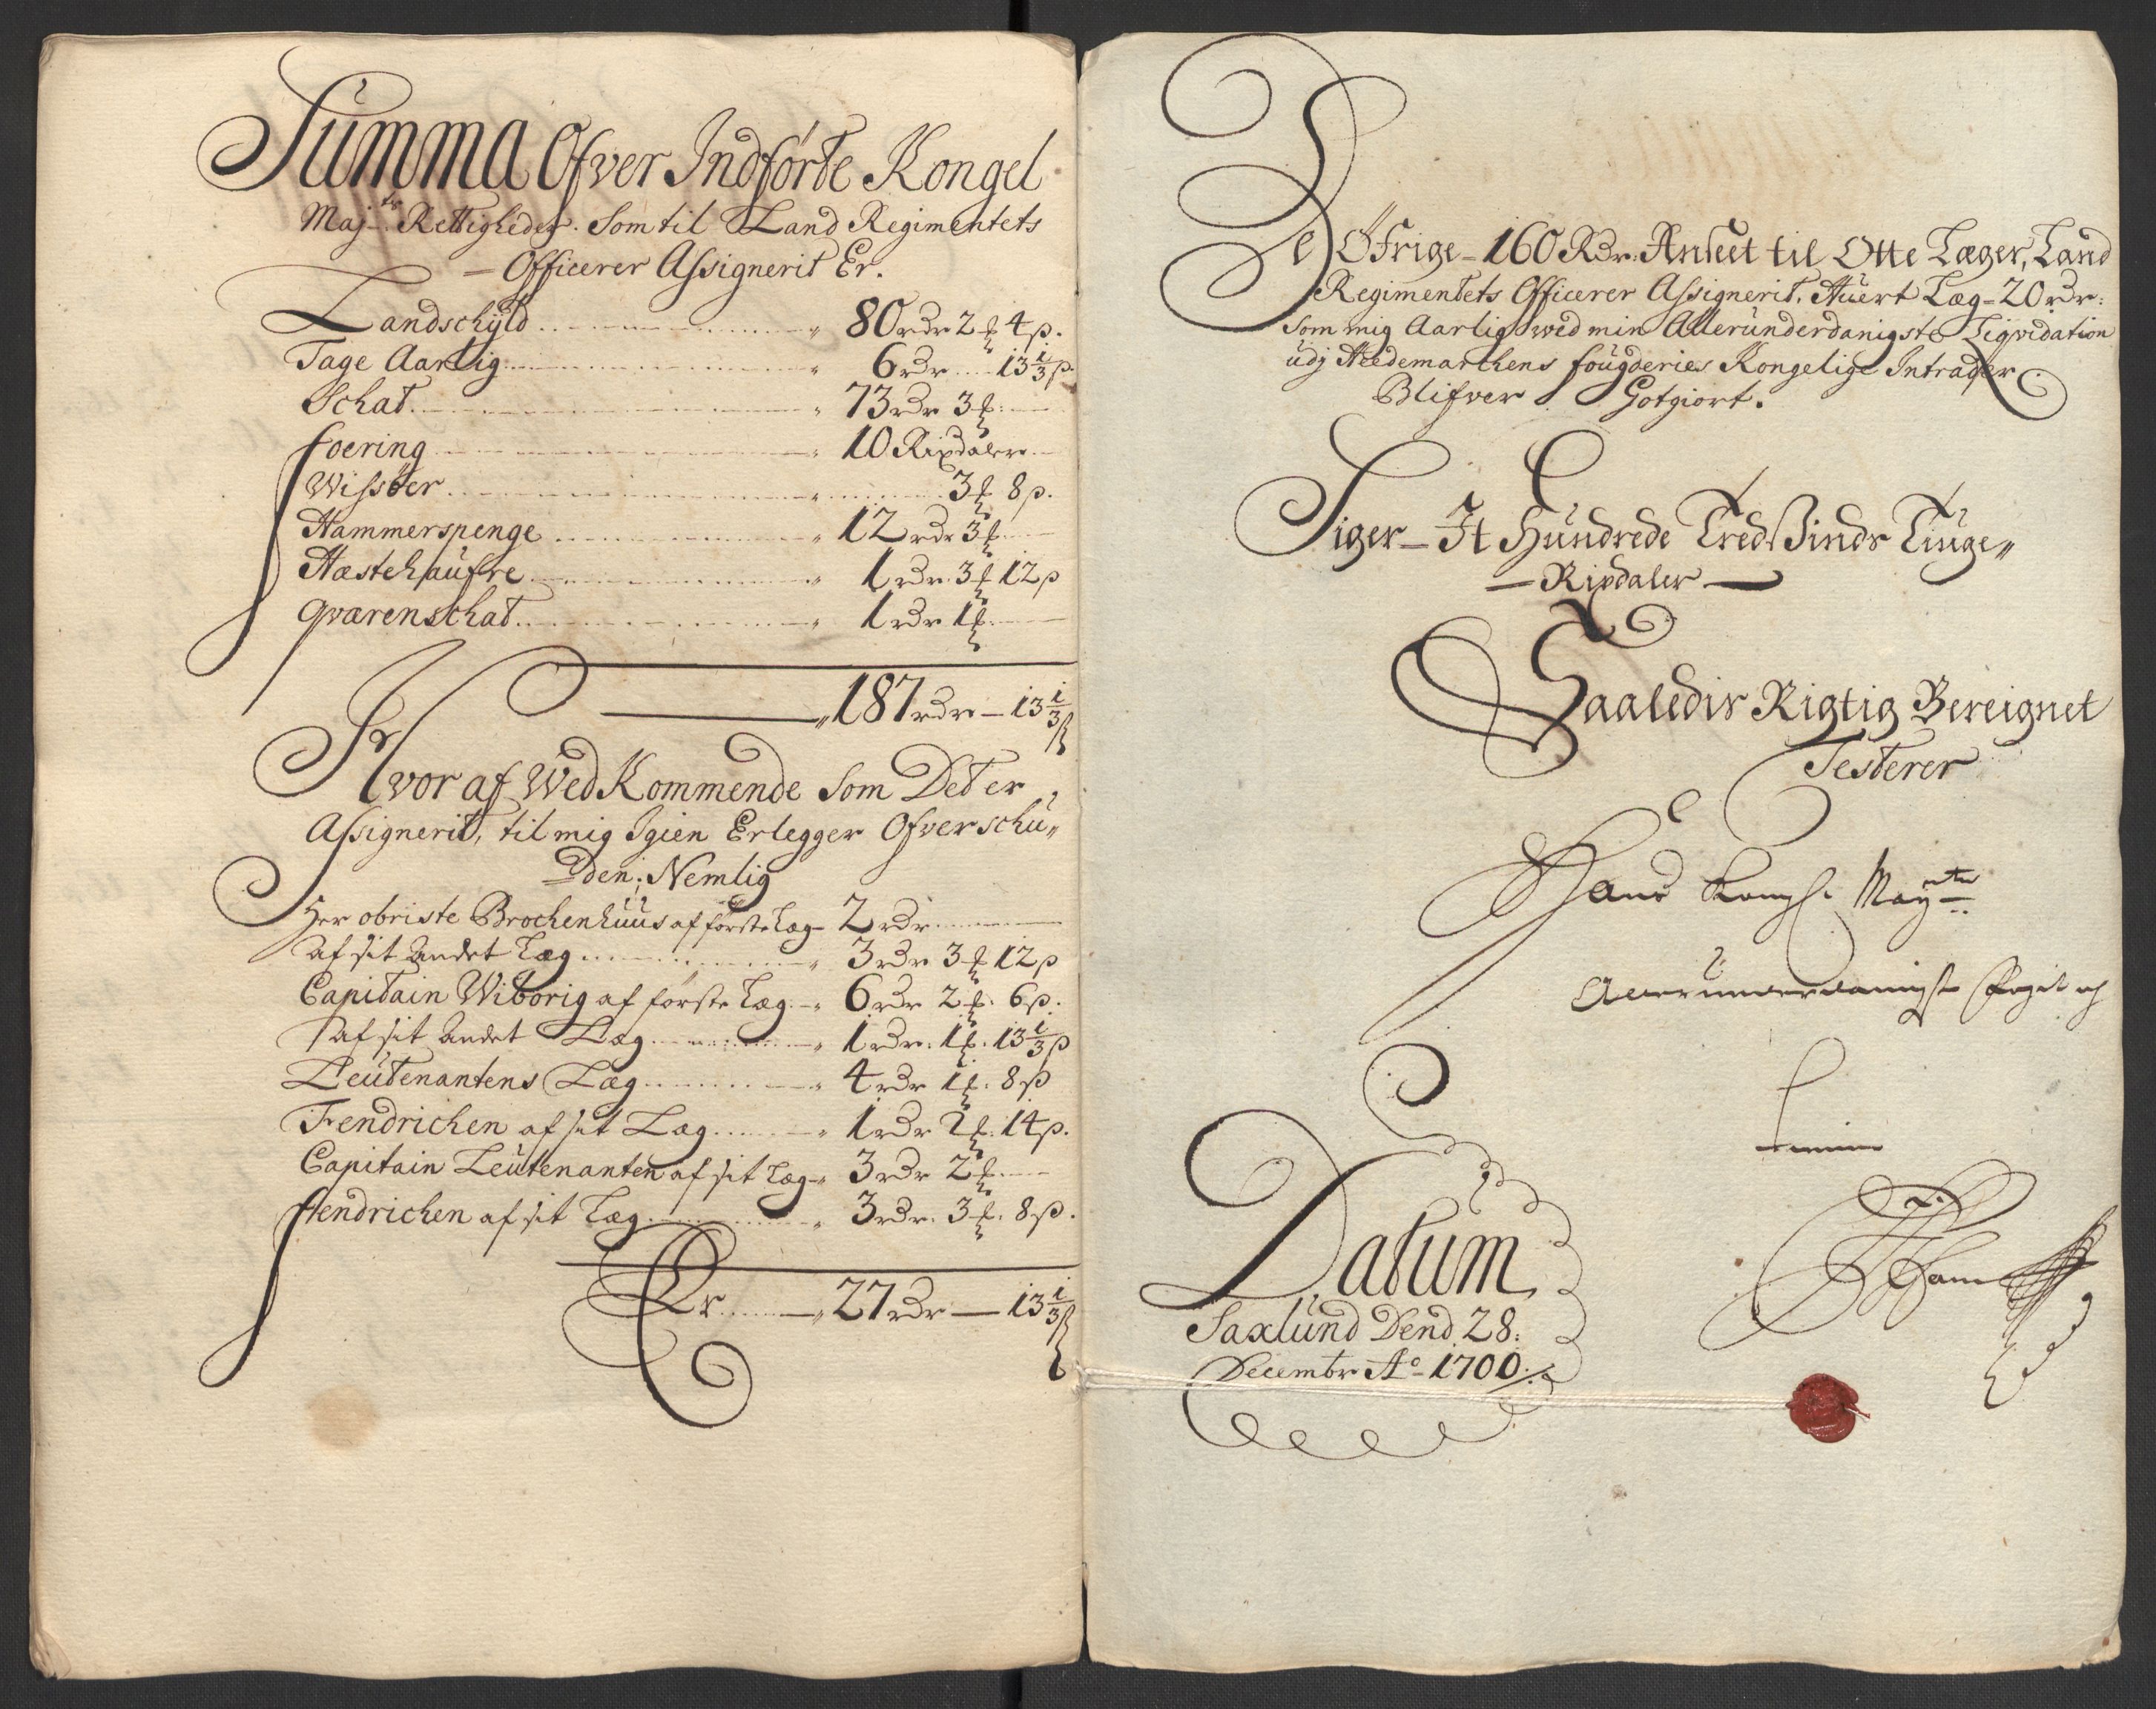 Summa Ofver Indførte Kongel
Majts. Rettigheder. Som til Land Regimentets
— Officerer Assignerit Er.
Landschyld „ 80 rdr 2 ƶ 4 β.
Tage Aarlig „ 6 rdr 13⅓ β
Schat „ 73 rdr 3 ƶ
foering „ 10 Rixdaler
Wissøer „ 3 ƶ 8 β.
Hammerspenge „ 12 rdr 3 ƶ
Hæstehaufre „ 1 rdr. 3 ƶ 12 β
qværenschat „ 1 rdr 1 ƶ
„ 187 rdr — 13⅓ β
Hvor af WedKommende Som Det er
Assignerit, til mig Igien Erlegger Ofverschu„
den; Nemlig
Her obriste Brochenhuus af første Læg – 2 rdr
af sit Andet Læg „ 3 rdr 3 ƶ 12 β
Capitain Wiborig af første Læg – „ 6 rdr 2 ƶ. 6 β.
af sit Andet Læg „ 1 rdr. 1 ƶ. 13⅓ β
Leutenantens Læg „ 4 rdr 1 ƶ. 8 β
Fendrichen af sit Læg „ 1 rdr 2 ƶ. 14 β.
Capitain Leutenanten af sit Læg „ 3 rdr 2 ƶ
fendrichen af sit Læg „ 3 rdr. 3 ƶ. 8 β.
Er „ 27 rdr — 13⅓ β
De Øfrige – 160 Rdr: Anseet til Otte Læger, Land
Regimentets Officerer Assignerit. Huert Læg – 20 rdr:
Som mig Aarlig wed min Allerunderdanigste Liqvidation
udj Heedemarchens fougderies Kongelige Intrader
Blifver Gotgiort.
Siger – It Hundrede Tredsinds Tiuge„
— Rixdaler —
Saaledis Rigtig Bereignet
Testerer
Hans Kongl. Mayts
Allerunderdanigste Fogit
Datum
Saxlund Dend 28:
Decembr Ao – 1700.